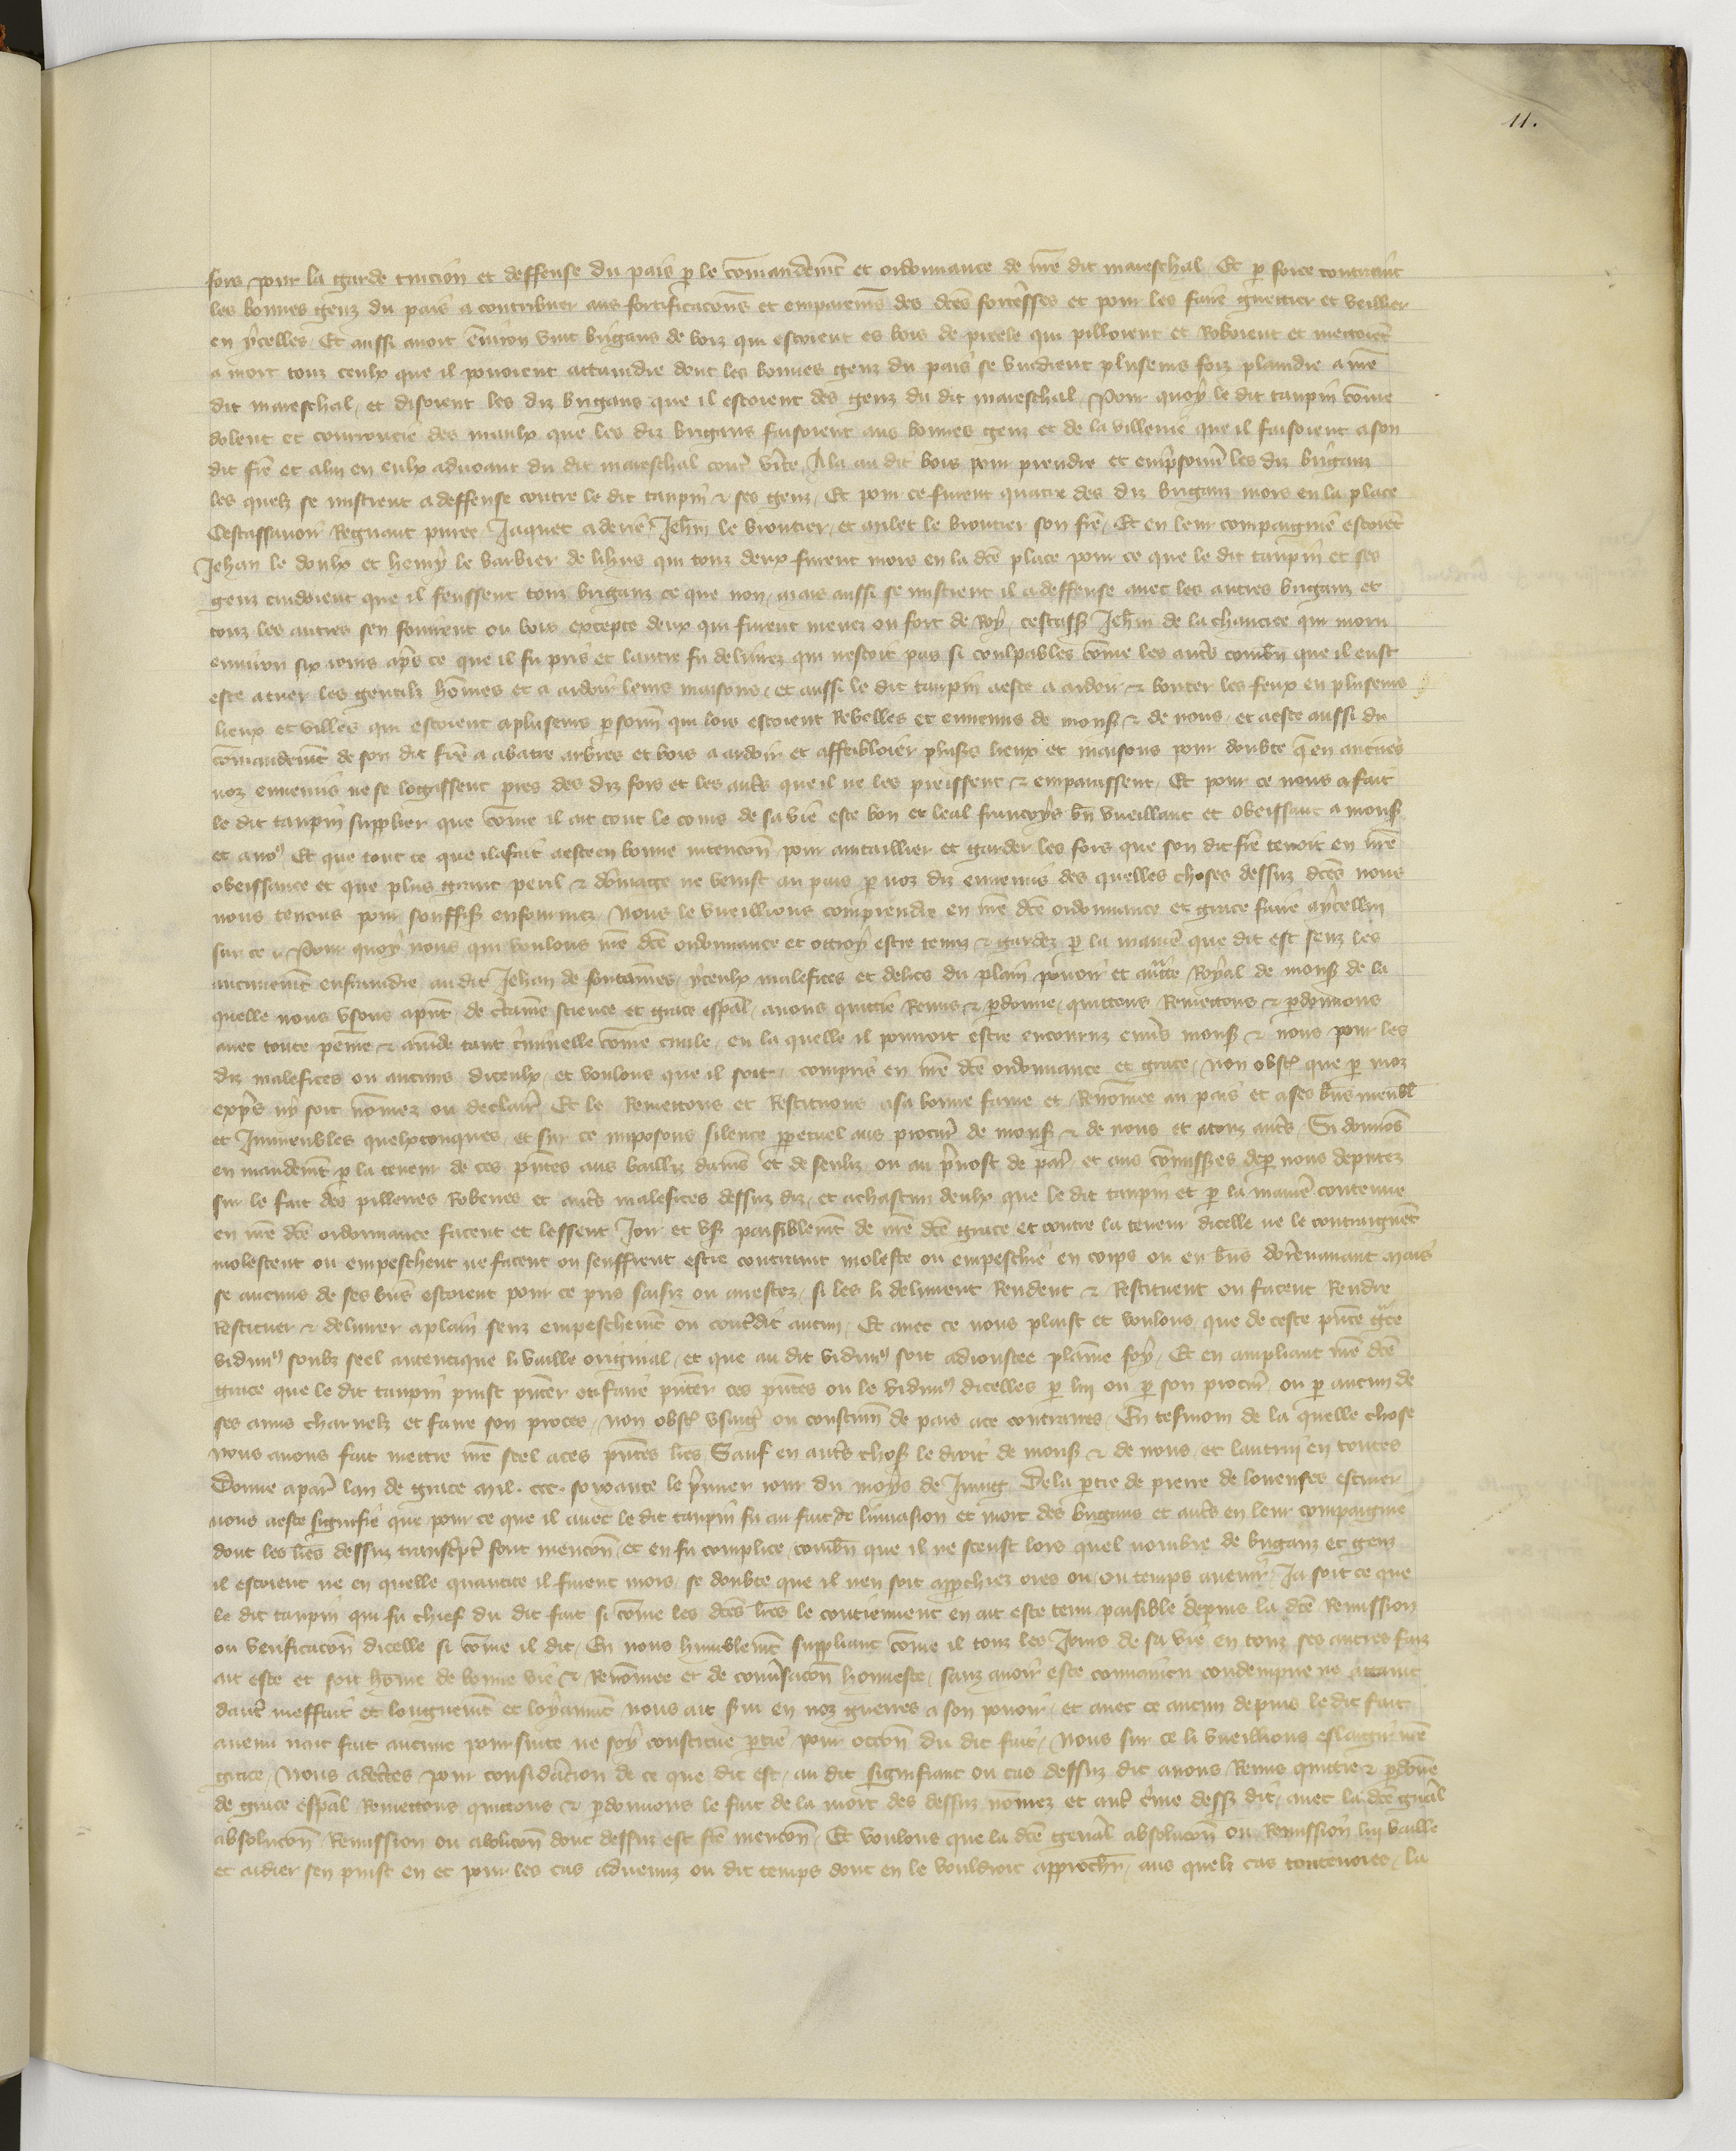 11.
fors pour la garde tuicion et deffense du pais p le comandemt et ordonnance de nre dit mareschal Et p force contraint
les bonnes genz du pais a contribuer aus fortificacons et emparemens des dces forteresses et pour les faire guettier et veillier
en ycelles Et aussi avoit environ vint brigans de bois qui estoient es bois de qui pilloient et Roboient et mettoient
a mort touz ceulx que il povoient attaindre dont les bonnes genz du pais se vindrent pluseurs foiz plaindre a nre
dit mareschal, et disoient les diz brigans que il estoient des genz du dit mareschal Pour quoy le dit taupin come
dolent et courroucie des maulx que les diz brigans faisoient aus bonnes genz et de la villenie que il faisoient a son
dit fre et alui en eulx advoant du dit mareschal contre verite Ala au dit bois pour prendre et emprisonner les diz briganz
les quelz se mistrent a deffense contre le dit taupin & ses genz, Et pour ce furent quatre des diz briganz mors en la place
Cestassavoir Regnaut Jaquet Jehan le et le son fre, Et en leur compaignie estoiet
Jehan le doulx et henry le barbier de lihus qui touz deux furent mors en la dce place pour ce que le dit taupin et ses
genz cuidoient que il feussent touz briganz ce que non, mais aussi se mistrent il a deffense avec les autres briganz et
touz les autres sen fouirent ou bois excepte deux qui furent menez ou fort de Roy, cestass Jehan de la qui moru
environ six iours aps ce que il fu pris et lautre fu delivrez qui nestoit pas si coulpables come les autres combn que il eust
este a tuer les gentilz homes et a ardoir leurs maisons, et aussi le dit taupin a este a ardoir & bouter les feux en pluseurs
lieux et villes qui estoient a pluseurs psonn qui lors estoient Rebelles et ennemis de mons & de nous, et a este aussi du
comandemt de son dit fre a abatre arbres et bois a ardoir et affebloier pluss lieux et maisons pour doubte q en aucunes
noz ennemis ne se logissent pres des diz fors et les autres que il ne les preissent & emparassent, Et pour ce nous a fait
le dit taupin supplier que come il ait tout le cours de sa vie este bon et leal francoys bn vueillant et obeissant a mons
et a nous Et que tout ce que il a fait a este en bonne intencion pour avitaillier et garder les fors que son dit fre tenoit en nre
obeissance et que plus grant peril & domage ne venist au pais p noz diz ennemis des quelles choses dessuz dces nous
nous tenons pour souffis enfourmez, Nous le vueillions comprendre en nre dce ordonnance et grace faire a ycellui
sur ce, Pour quoy nous qui voulons nre dce ordonnance et ottroy estre tenuz & gardez p la manie que dit est senz les
aucunemt enfraindre au dit Jehan de fontaines, yceulx malefices et deliz du plain povoir et auctte Royal de mons de la
quelle nous usons apnt de ctaine science et grace espal, avons quittie Remis & pdonne, quittons Remettons & pdonnons
avec toute peine & amde tant criminelle come civile, en la quelle il pourroit estre encouruz envers mons & nous pour les
diz malefices ou aucuns diceulx, et voulons que il soit compris en nre dce ordonnance et grace, Non obst que p moz
expres ny soit nomez ou declaire Et le Remettons et Restituons a sa bonne fame et Renomee au pais et a ses bns meubl
et Immeubles quelxconques, et sur ce imposons silence ppetuel aus procur de mons & de nous et a touz autres, Si donnos
en mandemt p la teneur de ces pntes aus bailliz damiens et de senliz ou au prevost de par et aus comisses de p nous deputez
sur le fait des pilleries Roberies et autres malefices dessuz diz, et a chascun deulx que le dit taupin et p la manie contenue
en nre dce ordonnance facent et lessent Joir et us paisiblemt de nre dce grace et contre la teneur dicelle ne le contraignet
molestent ou empeschent ne facent ou seuffrent estre contraint moleste ou empeschie en corps ou en bns dorenavant mais
se aucuns de ses bns estoient pour ce pris saisiz ou arrestez, si les li delivrent Rendent & Restituent ou facent Rendre
Restituer & delivrer a plain senz empeschemt ou contredit aucun, Et avec ce nous plaist et voulons que de ceste pnte gce
vidimus soubz seel autentique li vaille original, et que au dit vidimus soit adioustee plaine foy, Et en ampliant nre dce
grace que le dit taupin puist pnter et faire pnter ces pntes ou le vidimus dicelles p lui ou p son procur, ou p aucun de
ses amis charnelz et faire son proces, Non obst usaige ou constum de pais a ce contraires, En tesmoin de la quelle chose
nous avons fait mettre nre seel a ces pntes lres Sauf en autres choses le droit de mons & de nous, et lautrui en toutes
Donne a par lan de grace mil. ccc. soixante le premier iour du moys de Juing, De la ptie de pierre de louenses escuier
nous a este signifie que pour ce que il avec le dit taupin fu au fait de linvasion et mort des brigans et autres en leur compaignie
dont les lres dessuz transcptes font mencon et en fu complice, combn que il ne sceust lors quel nombre de briganz et genz
il estoient ne en quelle quantite il furent mors, se doubte que il nen soit approchiez ores ou ou temps avenir Ja soit ce que
le dit taupin qui fu chief du dit fait si come les dces lres le contiennent en ait este tenu paisible depuis la dce Remission
ou verificacon dicelle si come il dit, En nous humblemt suppliant come il touz les Jours de sa vie en touz ses autres faiz
ait este et soit home de bonne vie & Renomee et de conversacon honneste, sanz avoir este convaincu condempne ne attaint
dautre meffait et longuemt et loyaumt nous ait servi en noz guerres a son povoir, et avec ce aucun depuis le dit fait
avenu nait fait aucune poursuite ne soy constitue ptie pour occon du dit fait, Nous sur ce li vueillions eslargir nre
grace, Nous adectes pour consideracion de ce que dit est, au dit signifiant ou cas dessuz dit avons Remis quittie & pdonne
de grace espal Remettons quittons & pdonnons le fait de la mort des dessuz nomez et autre crime dess dit, avec la dce gnal
absolucon Remission ou abolicon dont dessuz est fte mencon, Et voulons que la dce general absolucon ou Remission lui vaille
et aidier sen puist en et pour les cas advenuz ou dit temps dont en le vouldroit approchr, aus quelz cas la